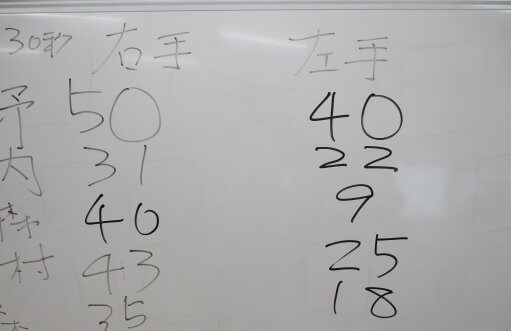 30秒 右手 左手
50 40
内 31 22
40 9
村 43 25
35 18